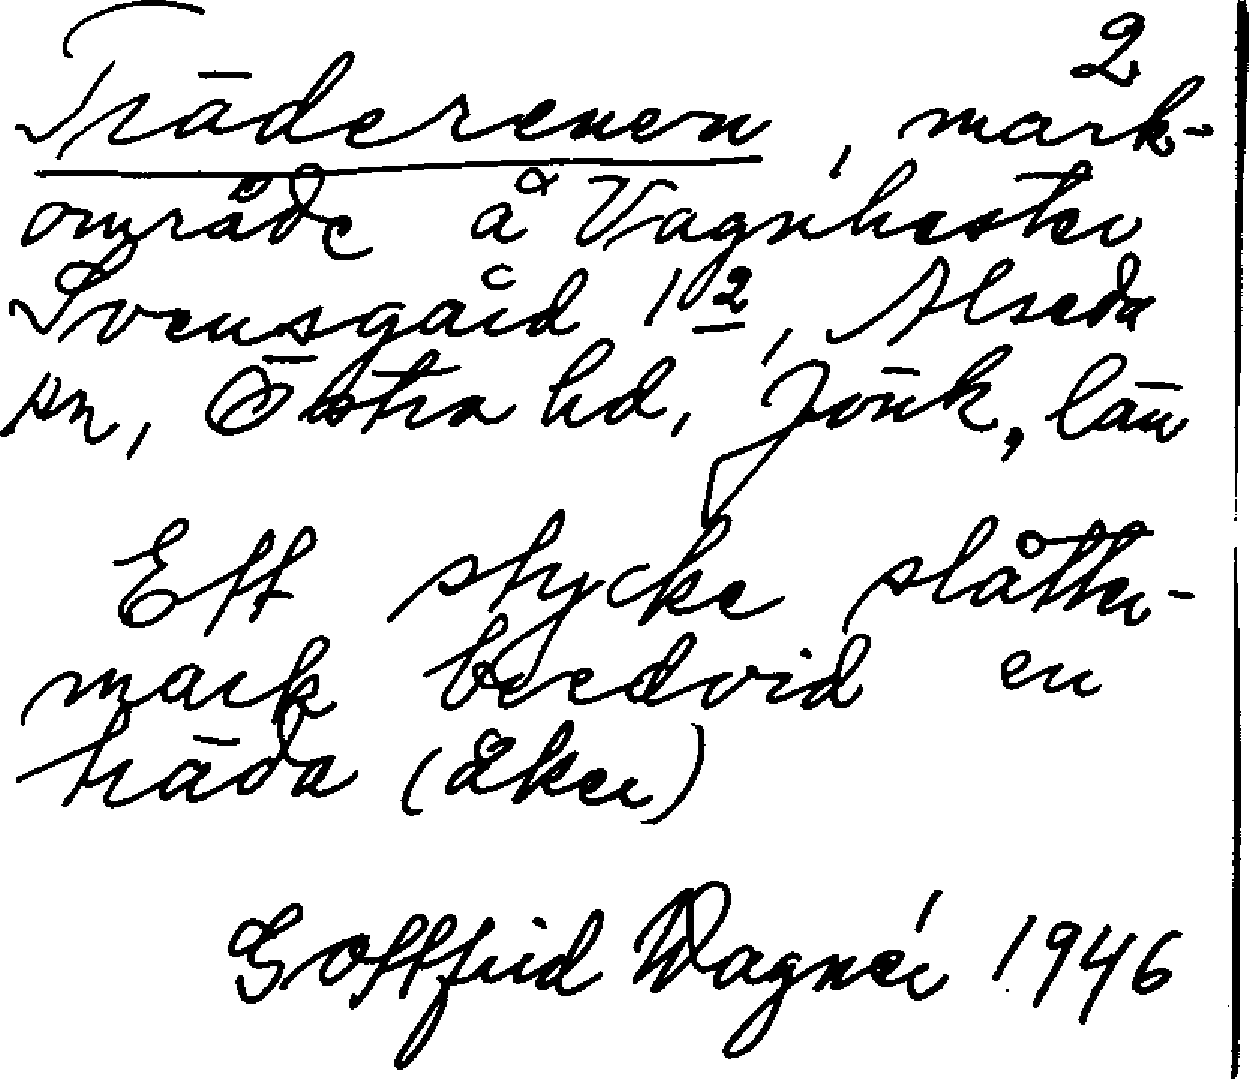 2
Träderenen, mark-
område å Vagnhester
Svensgård 1 2, Alseda
sn, Östra hd, Jönk, län
Ett stycke slåtter-
mark bredvid en
träda (åker)
Gottfrid Wagnér 1946